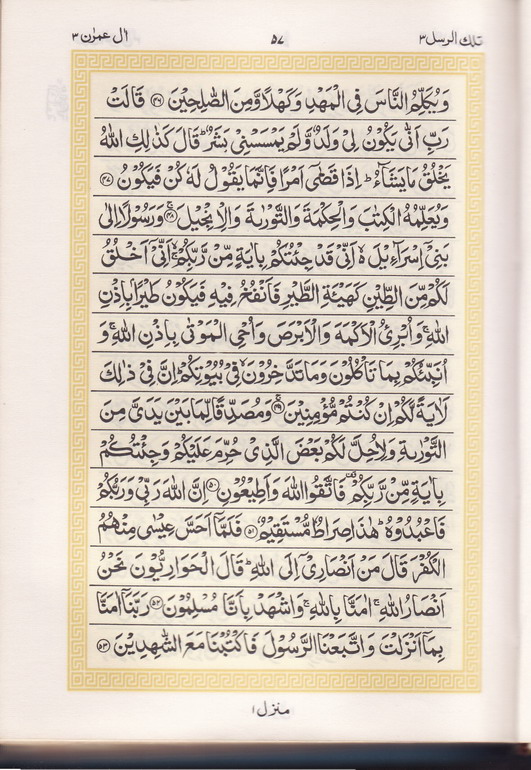 تلك الرسل ۳ ۵۷ ال عمرٰن ۳
وَيُكَلِّمُ النَّاسَ فِي الْمَهْدِ وَكَهْلًا وَّمِنَ الصّٰلِحِيْنَ ﴿۴۶﴾ قَالَتْ
رَبِّ اَنّٰى يَكُوْنُ لِيْ وَلَدٌ وَّلَمْ يَمْسَسْنِيْ بَشَرٌ ؕ قَالَ كَذٰلِكِ اللّٰهُ
يَخْلُقُ مَا يَشَآءُ ؕ اِذَا قَضٰۤى اَمْرًا فَاِنَّمَا يَقُوْلُ لَهٗ كُنْ فَيَكُوْنُ ﴿۴۷﴾
وَيُعَلِّمُهُ الْكِتٰبَ وَالْحِكْمَةَ وَالتَّوْرٰىةَ وَالْاِنْجِيْلَ ﴿۴۸﴾ وَرَسُوْلًا اِلٰى
بَنِيْۤ اِسْرَآءِيْلَ ۙ اَنِّيْ قَدْ جِئْتُكُمْ بِاٰيَةٍ مِّنْ رَّبِّكُمْ ۙ اَنِّيْۤ اَخْلُقُ
لَكُمْ مِّنَ الطِّيْنِ كَهَيْئَةِ الطَّيْرِ فَاَنْفُخُ فِيْهِ فَيَكُوْنُ طَيْرًۢا بِاِذْنِ
اللّٰهِ ۚ وَاُبْرِئُ الْاَكْمَهَ وَالْاَبْرَصَ وَاُحْيِ الْمَوْتٰى بِاِذْنِ اللّٰهِ ۚ وَ
اُنَبِّئُكُمْ بِمَا تَاْكُلُوْنَ وَمَا تَدَّخِرُوْنَ ۙ فِيْ بُيُوْتِكُمْ ؕ اِنَّ فِيْ ذٰلِكَ
لَاٰيَةً لَّكُمْ اِنْ كُنْتُمْ مُّؤْمِنِيْنَ ﴿۴۹﴾ وَمُصَدِّقًا لِّمَا بَيْنَ يَدَيَّ مِنَ
التَّوْرٰىةِ وَلِاُحِلَّ لَكُمْ بَعْضَ الَّذِيْ حُرِّمَ عَلَيْكُمْ وَجِئْتُكُمْ
بِاٰيَةٍ مِّنْ رَّبِّكُمْ فَاتَّقُوا اللّٰهَ وَاَطِيْعُوْنِ ﴿۵۰﴾ اِنَّ اللّٰهَ رَبِّيْ وَرَبُّكُمْ
فَاعْبُدُوْهُ ؕ هٰذَا صِرَاطٌ مُّسْتَقِيْمٌ ﴿۵۱﴾ فَلَمَّاۤ اَحَسَّ عِيْسٰى مِنْهُمُ
الْكُفْرَ قَالَ مَنْ اَنْصَارِيْۤ اِلَى اللّٰهِ ؕ قَالَ الْحَوَارِيُّوْنَ نَحْنُ
اَنْصَارُ اللّٰهِ ۚ اٰمَنَّا بِاللّٰهِ ۚ وَاشْهَدْ بِاَنَّا مُسْلِمُوْنَ ﴿۵۲﴾ رَبَّنَاۤ اٰمَنَّا
بِمَاۤ اَنْزَلْتَ وَاتَّبَعْنَا الرَّسُوْلَ فَاكْتُبْنَا مَعَ الشّٰهِدِيْنَ ﴿۵۳﴾
منزل ۱